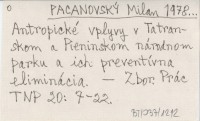 0 PACANOVSKÝ Milan 1978...
Antropické vplyvy v Tatran-
skom a Pieninskom národnom
parku a ich preventívna
eliminácia. — Zbor. Prác
TNP 20: 7-22.